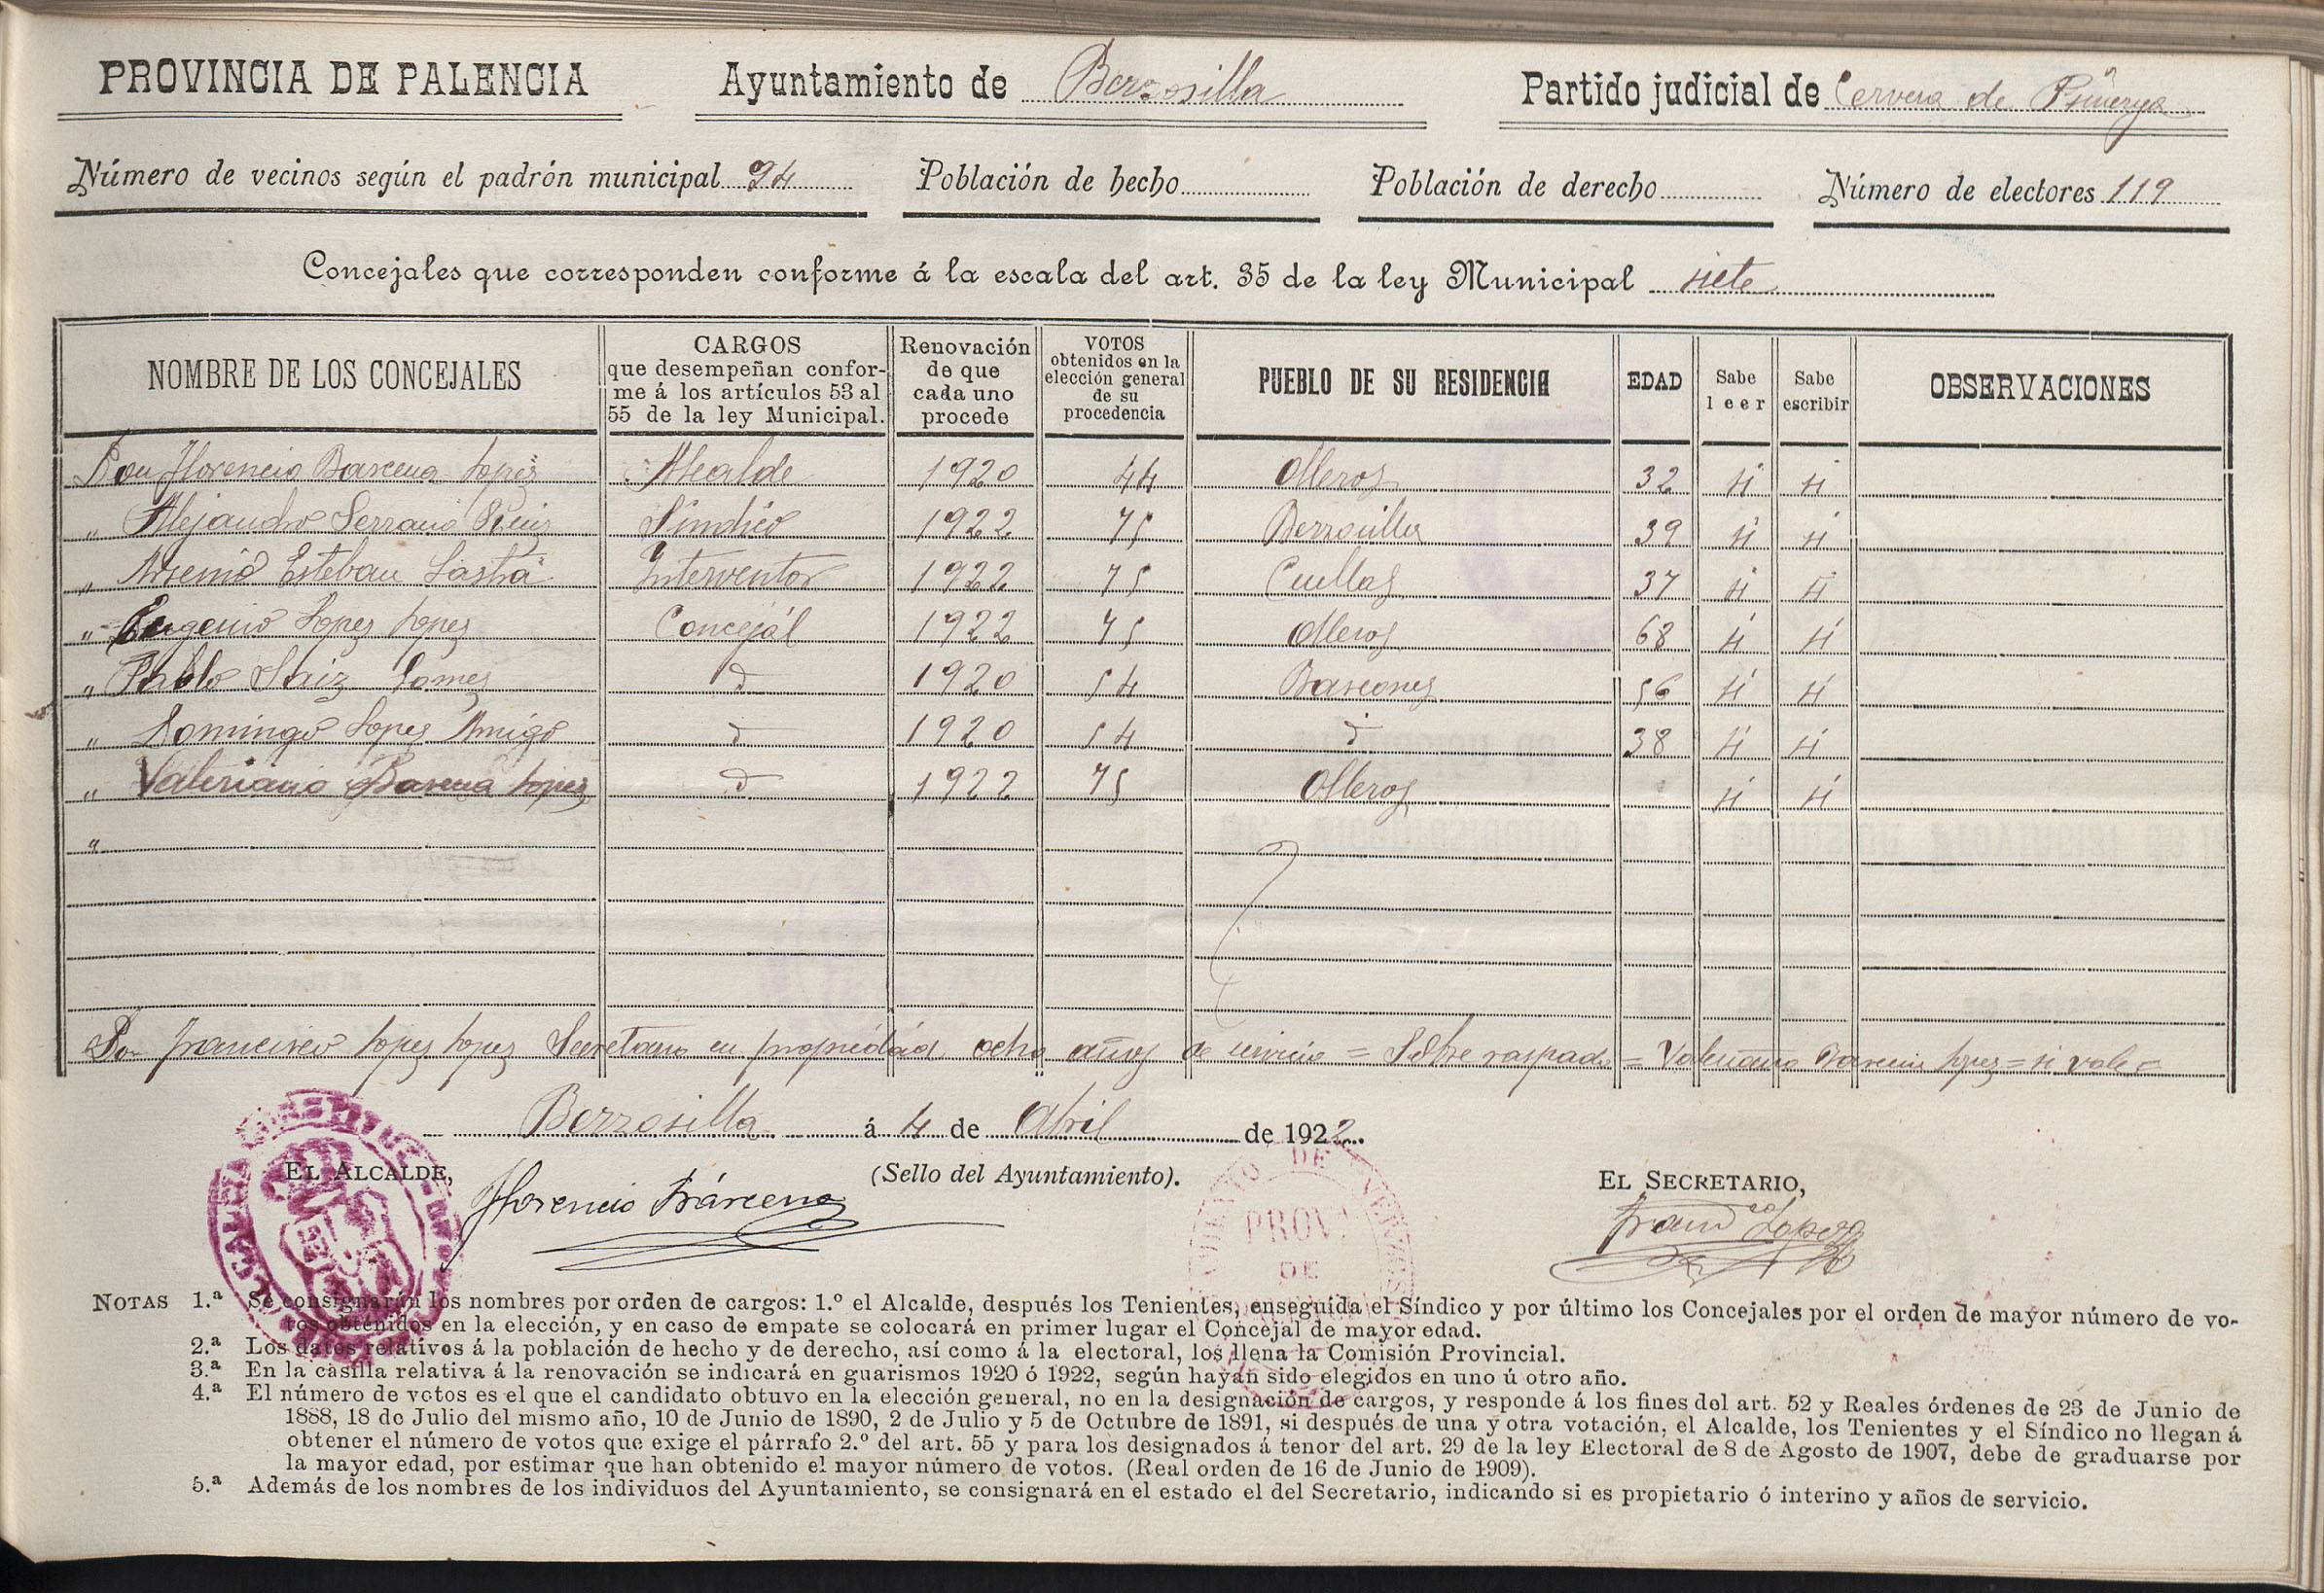 PROVINCIA DE PALENCIA Ayuntamiento de Berzosilla Partido judicial de Cervera de Pisuerga
Número de vecinos según el padrón municipal 94 Población de hecho Población de derecho Número de electores 119
Concejales que corresponden conforme á la escala del art. 35 de la ley Municipal siete
NOMBRE DE LOS CONCEJALES CARGOS que desempeñan conforme á los artículos 53 al 55 de la ley Municipal. Renovación de que cada uno procede VOTOS obtenidos en la elección general de su procedencia PUEBLO DE SU RESIDENCIA EDAD Sabe leer Sabe escribir OBSERVACIONES
Don Florencio Barcena Lopez Alcalde 1920 44 Olleros 32 si si
" Alejandro Serrano Ruiz Síndico 1922 75 Berzosilla 39 si si
" Arsenio Esteban Interventor 1922 75 Cuillas 37 si si
" Eugenio Lopez Lopez Concejál 1922 75 Olleros 68 si si
" Pablo Saiz Gomez d 1920 54 Bascones 56 si si
" Domingo Lopez Amigo d 1920 54 d 38 si si
" Valeriano Barcena Lopez d 1922 75 Olleros si si
"
Don Francisco Lopez Lopez Secretario en propiédád, ocho años de servicio = Sobre raspado = Valeriano Barcena Lopez = si vale =
Berzosilla á 4 de Abril de 1922.
EL ALCALDE, (Sello del Ayuntamiento). EL SECRETARIO,
Florencio Bárcena Franco Lopez
PROV.
DE
NOTAS 1.ª Se consignarán los nombres por orden de cargos: 1.º el Alcalde, después los Tenientes, enseguida el Síndico y por último los Concejales por el orden de mayor número de vo-
tos obtenidos en la elección, y en caso de empate se colocará en primer lugar el Concejal de mayor edad.
2.ª Los datos relativos á la población de hecho y de derecho, así como á la electoral, los llena la Comisión Provincial.
3.ª En la casilla relativa á la renovación se indicará en guarismos 1920 ó 1922, según hayan sido elegidos en uno ú otro año.
4.ª El número de votos es el que el candidato obtuvo en la elección general, no en la designación de cargos, y responde á los fines del art. 52 y Reales órdenes de 23 de Junio de
1888, 18 de Julio del mismo año, 10 de Junio de 1890, 2 de Julio y 5 de Octubre de 1891, si después de una y otra votación, el Alcalde, los Tenientes y el Síndico no llegan á
obtener el número de votos que exige el párrafo 2.º del art. 55 y para los designados á tenor del art. 29 de la ley Electoral de 8 de Agosto de 1907, debe de graduarse por
la mayor edad, por estimar que han obtenido el mayor número de votos. (Real orden de 16 de Junio de 1909).
5.ª Además de los nombres de los individuos del Ayuntamiento, se consignará en el estado el del Secretario, indicando si es propietario ó interino y años de servicio.